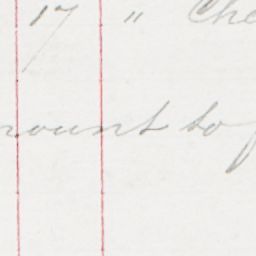 17 " Che
mount to f